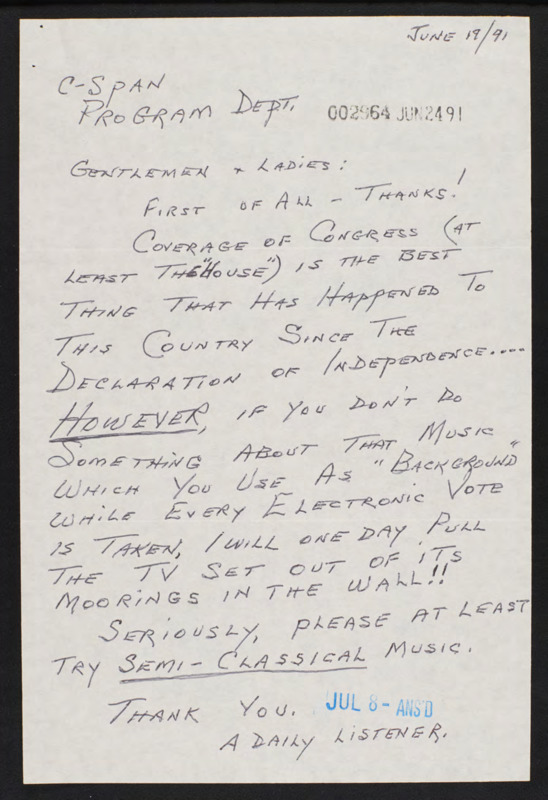 JUNE 19/91
C-SPAN
PROGRAM DEPT.
002964 JUN2491
GENTLEMEN + LADIES:
FIRST OF ALL - THANKS!
COVERAGE OF CONGRESS (AT
LEAST THE "HOUSE") IS THE BEST
THING THAT HAS HAPPENED TO
THIS COUNTRY SINCE THE
DECLARATION OF INDEPENDENCE....
HOWEVER, IF YOU DON'T DO
SOMETHING ABOUT THAT MUSIC
WHICH YOU USE AS "BACKGROUND"
WHILE EVERY ELECTRONIC VOTE
IS TAKEN, I WILL ONE DAY PULL
THE TV SET OUT OF ITS
MOORINGS IN THE WALL!!
SERIOUSLY, PLEASE AT LEAST
TRY SEMI-CLASSICAL MUSIC.
THANK YOU.
JUL 8- ANS'D
A DAILY LISTENER.